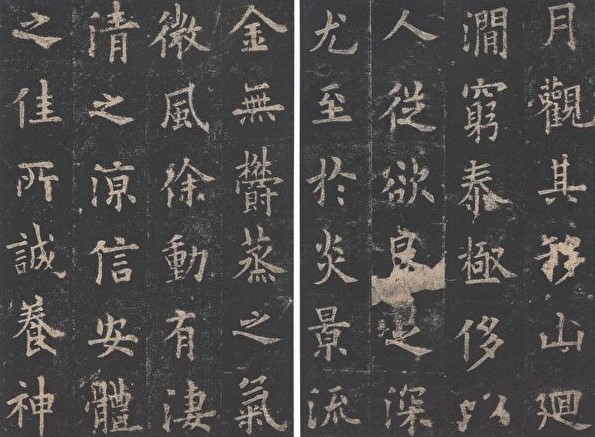 月觀其移山廻
澗窮泰極侈以
人從欲良足深
尤至於炎景流
金無欝蒸之氣
微風徐動有淒
清之涼信安體
之佳所誠養神